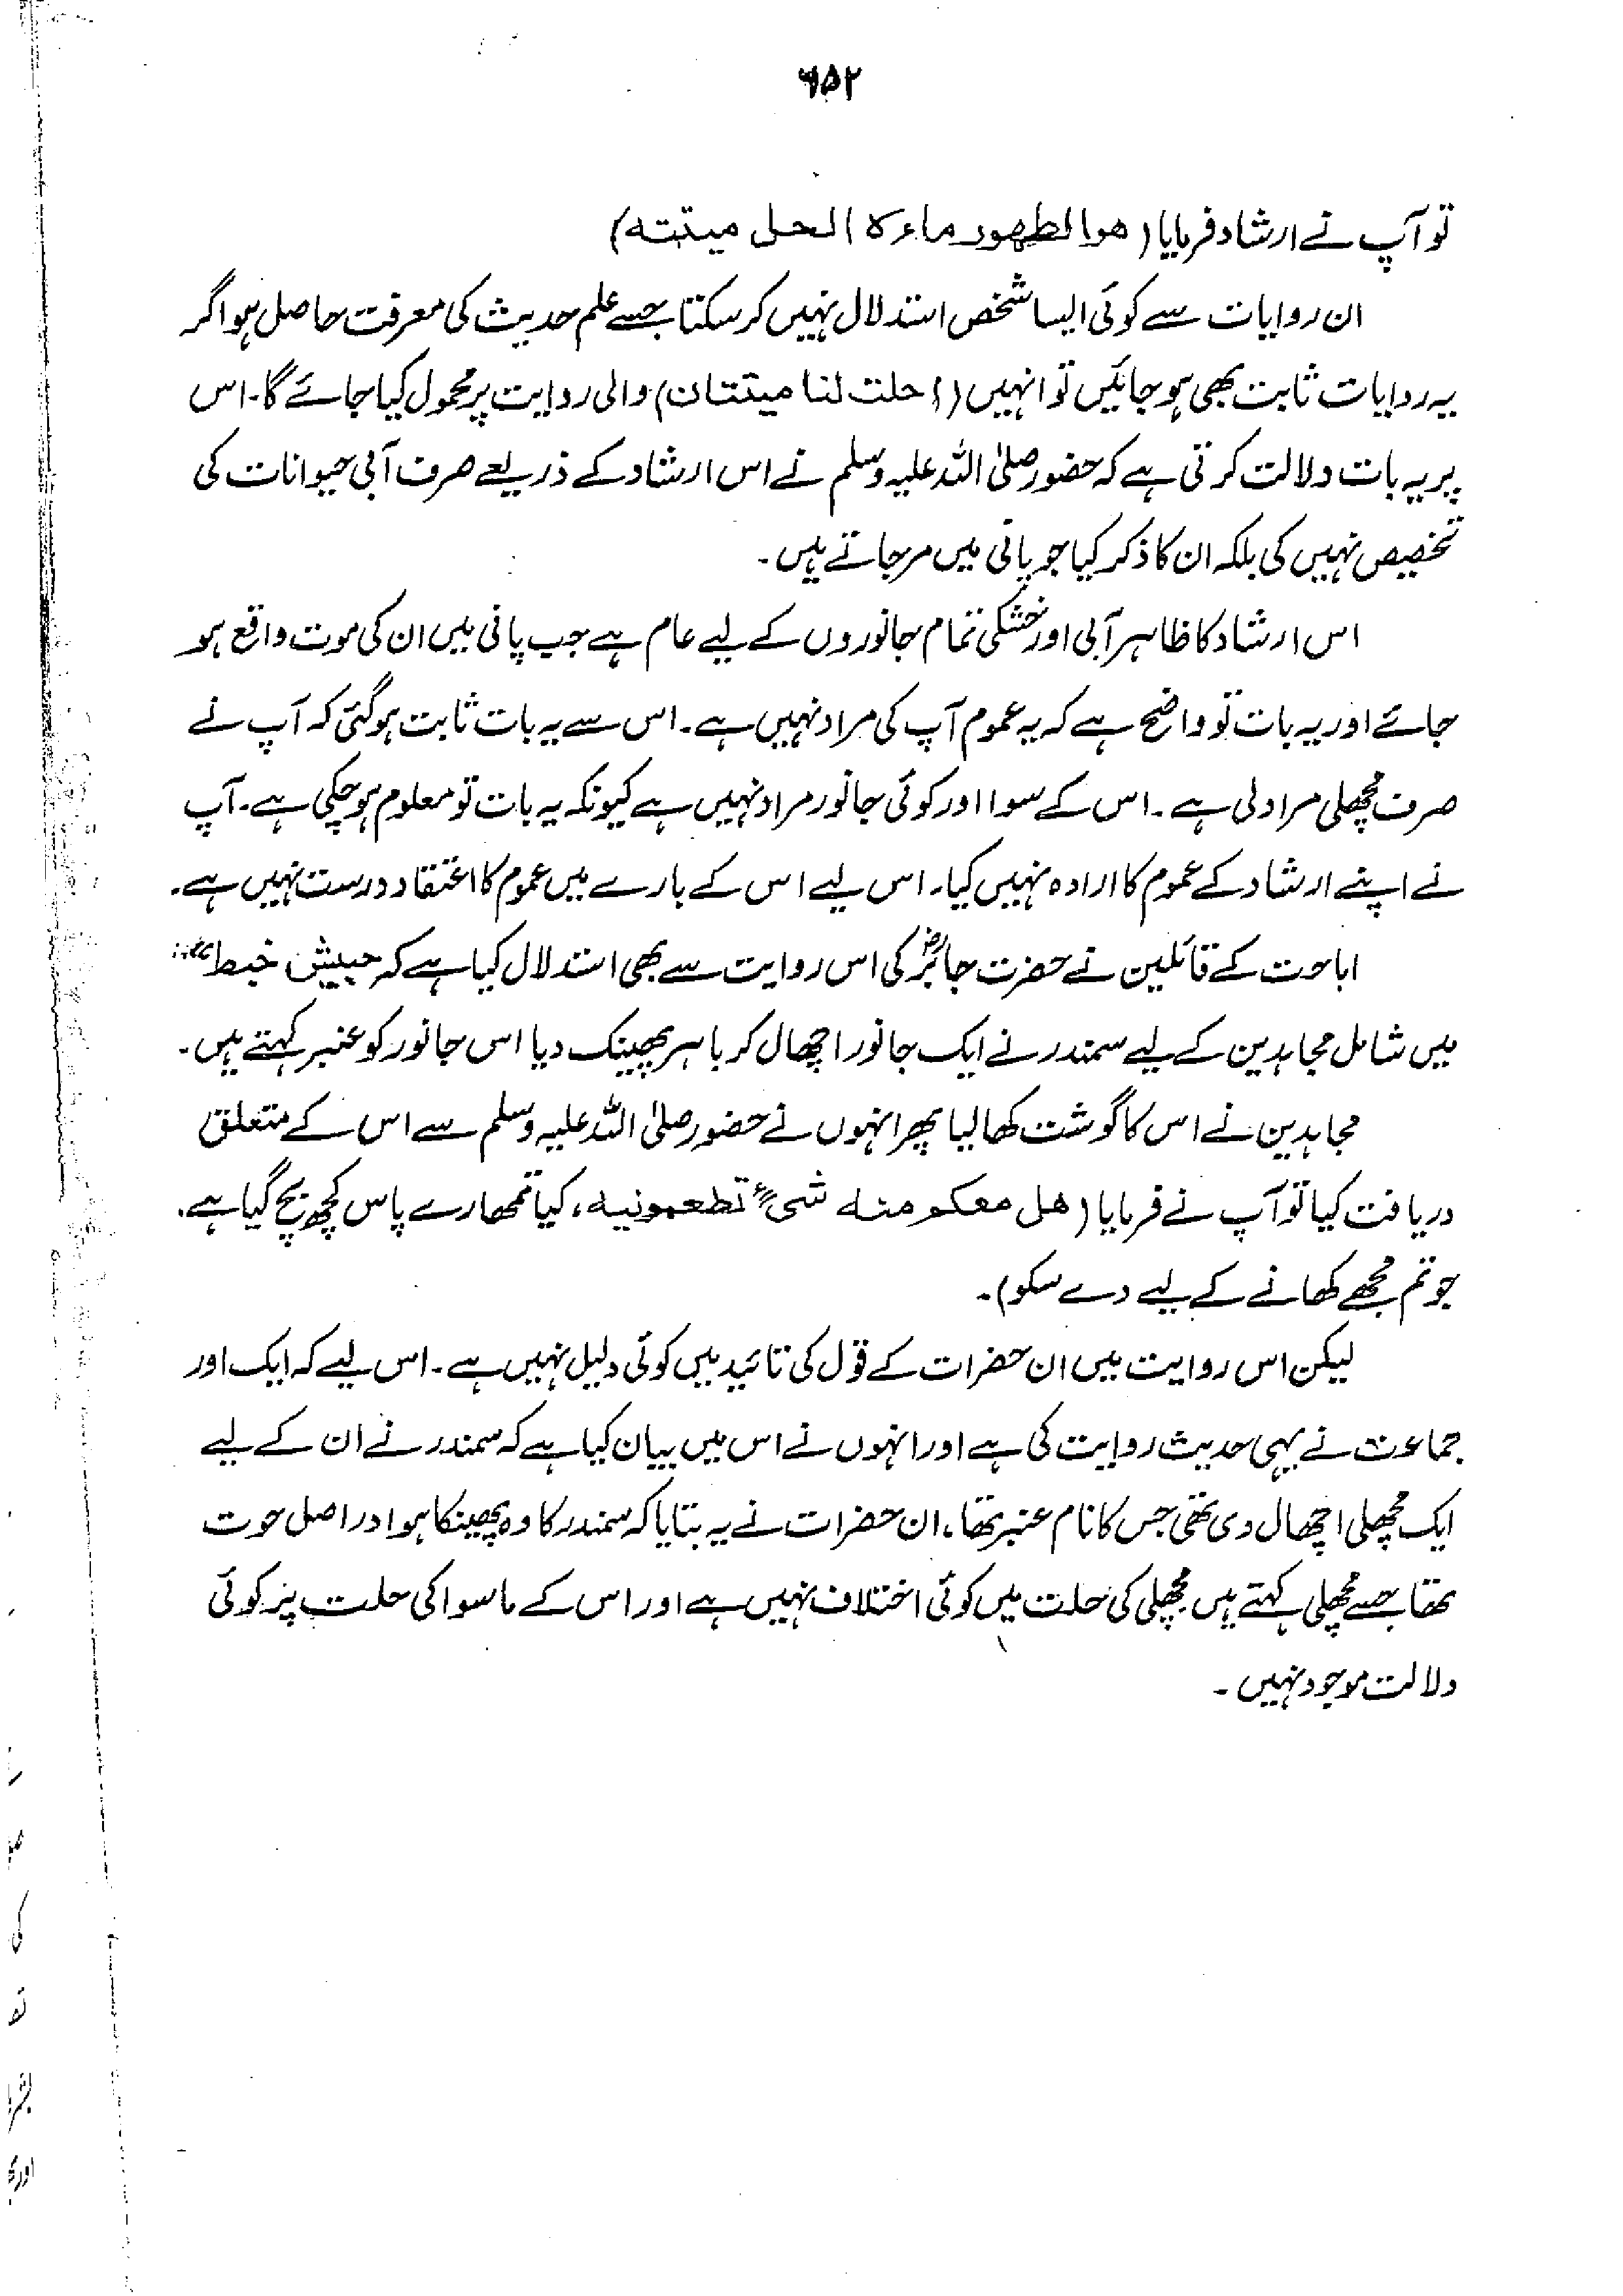 ۶۵۲
تو آپ نے ارشاد فرمایا (ھوالطھور ماءہ الحل میتتہ)
ان روایات سے کوئی ایسا شخص استدلال نہیں کر سکتا جسے علم حدیث کی معرفت حاصل ہو اگر
یہ روایات ثابت بھی ہو جائیں تو انہیں (احلت لنا میتتان) والی روایت پر محمول کیا جائے گا۔ اس
پر یہ بات دلالت کرتی ہے کہ حضور صلی اللہ علیہ وسلم نے اس ارشاد کے ذریعے صرف آبی حیوانات کی
تخصیص نہیں کی بلکہ ان کا ذکر کیا جو پانی میں مر جاتے ہیں۔
اس ارشاد کا ظاہر آبی اور خشکی تمام جانوروں کے لیے عام ہے جب پانی میں ان کی موت واقع ہو
جائے اور یہ بات تو واضح ہے کہ یہ عموم آپ کی مراد نہیں ہے۔ اس سے یہ بات ثابت ہو گئی کہ آپ نے
صرف مچھلی مراد لی ہے۔ اس کے سوا اور کوئی جانور مراد نہیں ہے کیونکہ یہ بات تو معلوم ہو چکی ہے۔ آپ
نے اپنے ارشاد کے عموم کا ارادہ نہیں کیا۔ اس لیے اس کے بارے میں عموم کا اعتقاد درست نہیں ہے۔
اباحت کے قائلین نے حضرت جابرؓ کی اس روایت سے بھی استدلال کیا ہے کہ جیش خبط
میں شامل مجاہدین کے لیے سمندر نے ایک جانور اچھال کر باہر پھینک دیا اس جانور کو عنبر کہتے ہیں۔
مجاہدین نے اس کا گوشت کھا لیا پھر انہوں نے حضور صلی اللہ علیہ وسلم سے اس کے متعلق
دریافت کیا تو آپ نے فرمایا (ھل معکم منہ شیٔ تطعمونیہ، کیا تمھارے پاس کچھ بچ گیا ہے۔
جو تم مجھے کھانے کے لیے دے سکو)۔
لیکن اس روایت میں ان حضرات کے قول کی تائید میں کوئی دلیل نہیں ہے۔ اس لیے کہ ایک اور
جماعت نے یہی حدیث روایت کی ہے اور انہوں نے اس میں بیان کیا ہے کہ سمندر نے ان کے لیے
ایک مچھلی اچھال دی تھی جس کا نام عنبر تھا، ان حضرات نے یہ بتایا کہ سمندر کا وہ پھینکا ہوا دراصل حوت
تھا جسے مچھلی کہتے ہیں مچھلی کی حلت میں کوئی اختلاف نہیں ہے اور اس کے ماسوا کی حلت پر کوئی
دلالت موجود نہیں۔